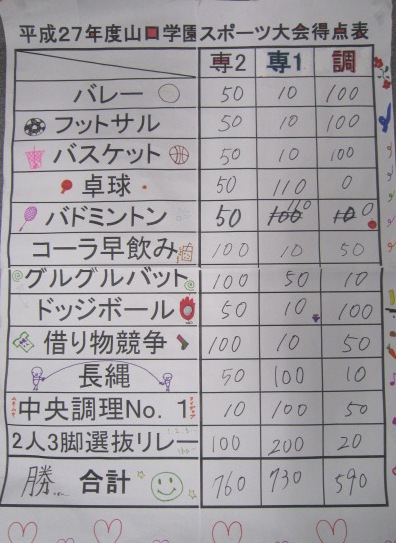 平成27年度山口学園スポーツ大会得点表
専2 専1 調
バレー 50 10 100
フットサル 50 10 100
バスケット 50 10 100
卓球 50 110 0
バドミントン 50 110 0
コーラ早飲み 100 10 50
グルグルバット 100 50 10
ドッジボール 50 10 100
借り物競争 100 10 50
長縄 50 100 10
中央調理No. 1 10 100 50
2人3脚選抜リレー 100 200 20
勝 合計 760 730 590